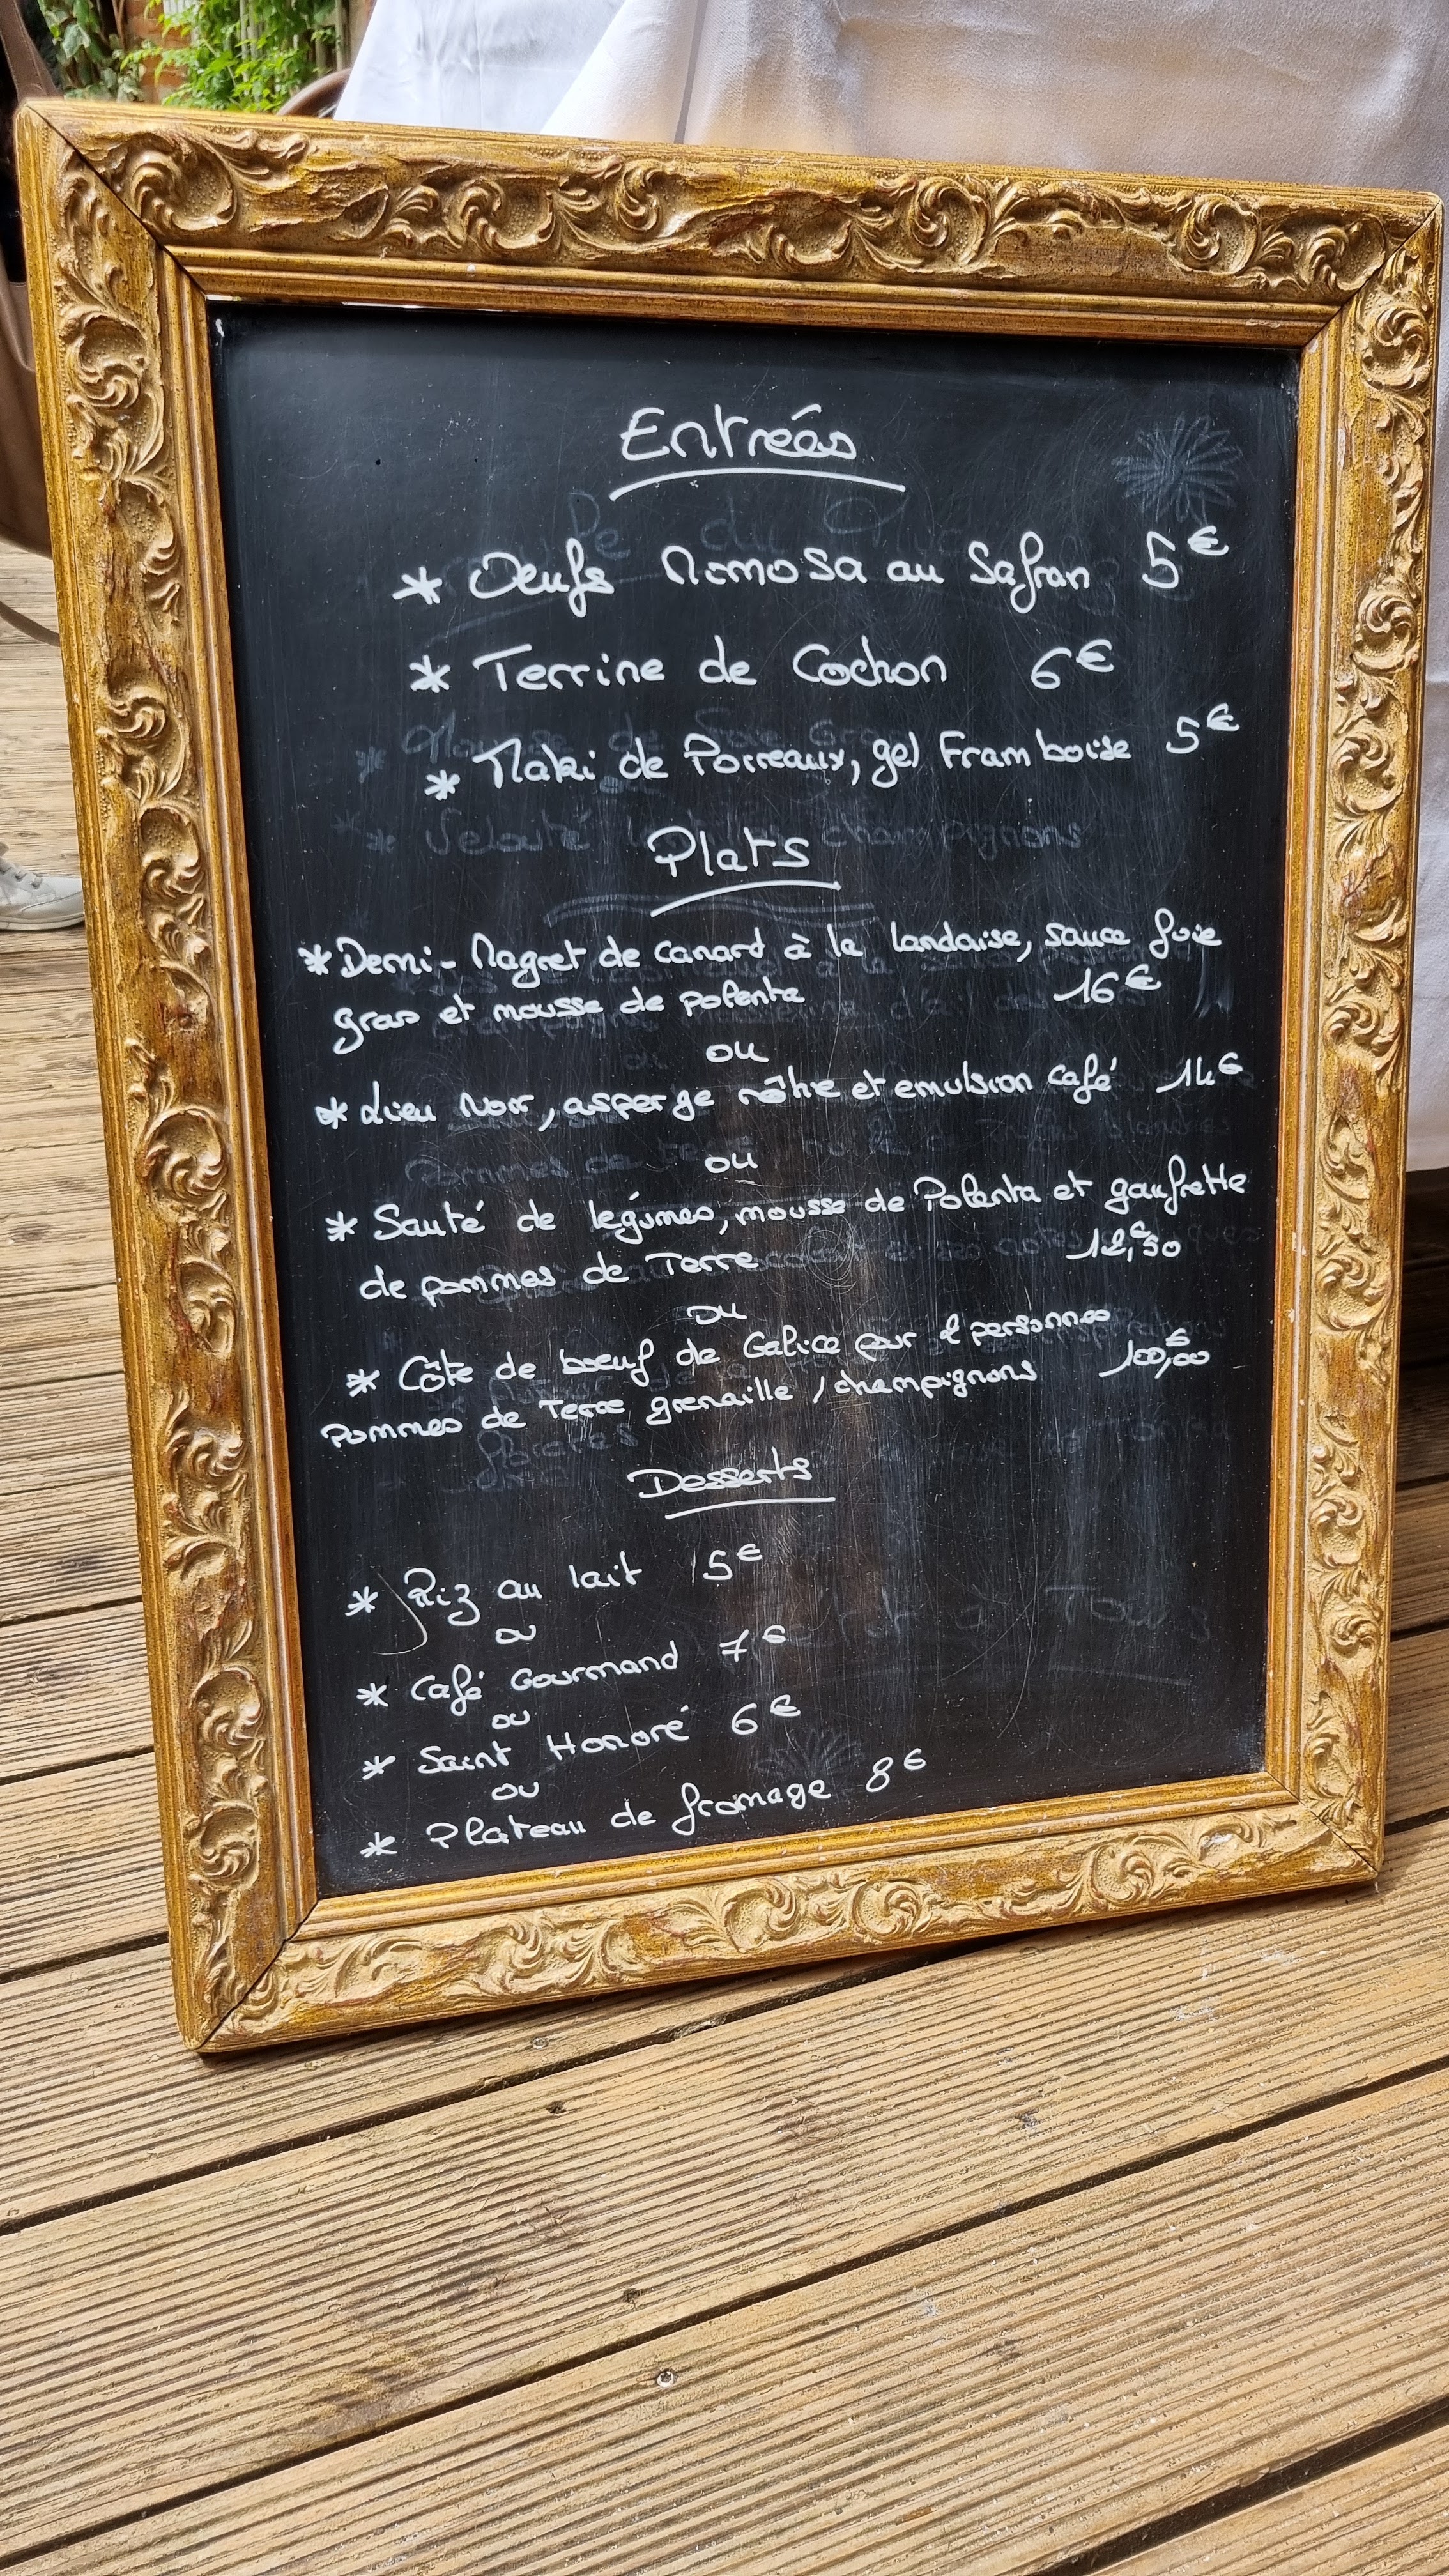 Entrées
* Oeufs Mimosa au Safran 5€
* Terrine de Cochon 6€
* Maki de Porreaux, gel Framboise 5€
Plats
* Demi-Magret de canard à la landaise, sauce foie
gras et mousse de polenta 16€
ou
* Lieu Noir, asperge rôtie et emulsion café 14€
ou
* Sauté de légumes, mousse de Polenta et gaufrette
de pommes de Terre 12,€50
ou
* Côte de boeuf de Galice pour 2 personnes
Pommes de Terre grenaille / champignons 100,€00
Desserts
* Riz au lait 5€
ou
* Café Gourmand 7€
ou
* Saint Honoré 6€
ou
* Plateau de fromage 8€